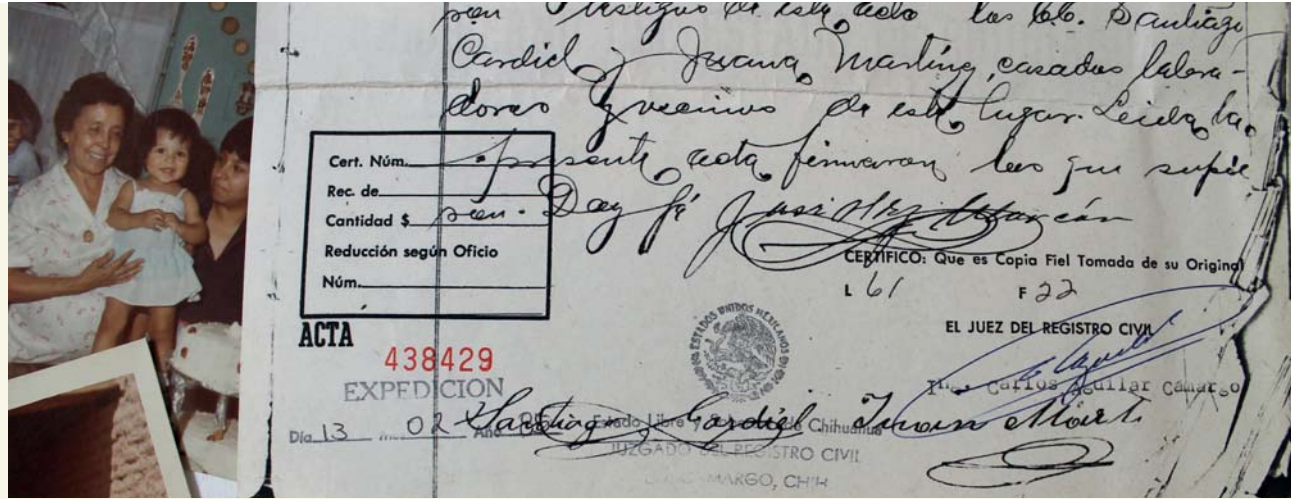 sean testigos de este acto los CC. Santiago
Cardiel y Juana Martínez, casados labra-
dores y vecinos de este lugar. Leída la
presente acta firmaron los que supie
ron. Doy fé
Cert. Núm.
Rec. de
Cantidad $
Reducción según Oficio
Núm.
CERTIFICO: Que es Copia Fiel Tomada de su Original
L 61 F 22
EL JUEZ DEL REGISTRO CIVIL
Ing. Carlos Aguilar Camargo
ACTA
438429
EXPEDICION
ESTADOS UNIDOS MEXICANOS
Día 13 02 Año
Santiago Cardiel Juan Marti
Estado Libre y de Chihuahua
JUZGADO DEL REGISTRO CIVIL
CAMARGO, CHIH